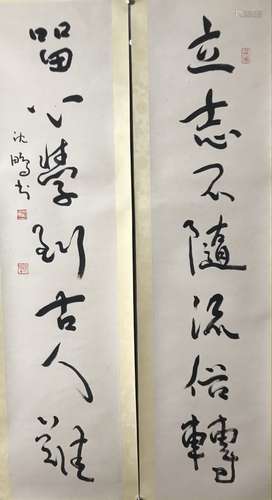 立志不隨流俗轉
留心學到古人難
沈鵬书